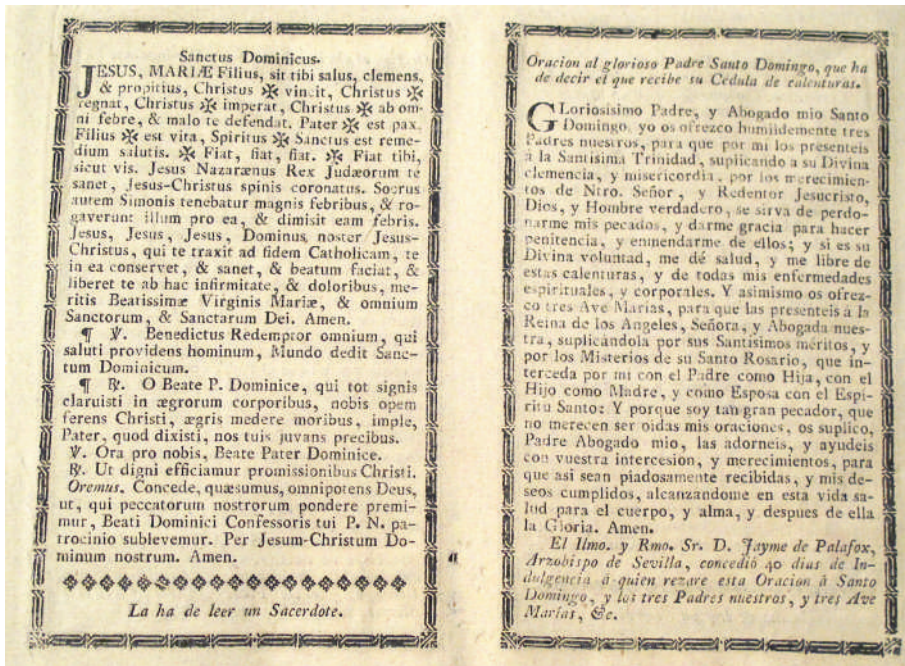 Sanctus Dominicus.
JESUS, MARIÆ Filius, sit tibi salus, clemens,
& propitius, Christus ✠ vincit, Christus ✠
regnat, Christus ✠ imperat, Christus ✠ ab om-
ni febre, & malo te defendat. Pater ✠ est pax.
Filius ✠ est vita, Spiritus ✠ Sanctus est reme-
dium salutis. ✠ Fiat, fiat, fiat. ✠ Fiat tibi,
sicut vis. Jesus Nazarænus Rex Judæorum te
sanet, Jesus-Christus spinis coronatus. Socrus
autem Simonis tenebatur magnis febribus, & ro-
gaverunt illum pro ea, & dimisit eam febris.
Jesus, Jesus, Jesus, Dominus noster Jesus-
Christus, qui te traxit ad fidem Catholicam, te
in ea conservet, & sanet, & beatum faciat, &
liberet te ab hac infirmitate, & doloribus, me-
ritis Beatissimæ Virginis Mariæ, & omnium
Sanctorum, & Sanctarum Dei. Amen.
¶ ℣. Benedictus Redemptor omnium, qui
saluti providens hominum, Mundo dedit Sanc-
tum Dominicum.
¶ ℟. O Beate P. Dominice, qui tot signis
claruisti in ægrorum corporibus, nobis opem
ferens Christi, ægris medere moribus, imple,
Pater, quod dixisti, nos tuis juvans precibus.
℣. Ora pro nobis, Beate Pater Dominice.
℟. Ut digni efficiamur promissionibus Christi.
Oremus. Concede, quæsumus, omnipotens Deus,
ut, qui peccatorum nostrorum pondere premi-
mur, Beati Dominici Confessoris tui P. N. pa-
trocinio sublevemur. Per Jesum-Christum Do-
minum nostrum. Amen.
La ha de leer un Sacerdote.
a
Oracion al glorioso Padre Santo Domingo, que ha
de decir el que recibe su Cedula de calenturas.
GLoriosisimo Padre, y Abogado mio Santo
Domingo, yo os ofrezco humildemente tres
Padres nuestros, para que por mi los presenteis
á la Santisima Trinidad, suplicando a su Divina
clemencia, y misericordia, por los merecimien-
tos de Ntro. Señor, y Redentor Jesucristo,
Dios, y Hombre verdadero, se sirva de perdo-
narme mis pecados, y darme gracia para hacer
penitencia, y enmendarme de ellos; y si es su
Divina voluntad, me dé salud, y me libre de
estas calenturas, y de todas mis enfermedades
espirituales, y corporales. Y asimismo os ofrez-
co tres Ave Marias, para que las presenteis á la
Reina de los Angeles, Señora, y Abogada nues-
tra, suplicándola por sus Santisimos méritos, y
por los Misterios de su Santo Rosario, que in-
terceda por mi con el Padre como Hija, con el
Hijo como Madre, y como Esposa con el Espi-
ritu Santo: Y porque soy tan gran pecador, que
no merecen ser oidas mis oraciones, os suplico,
Padre Abogado mio, las adorneis, y ayudeis
con vuestra intercesion, y merecimientos, para
que asi sean piadosamente recibidas, y mis de-
seos cumplidos, alcanzandome en esta vida sa-
lud para el cuerpo, y alma, y despues de ella
la Gloria. Amen.
El Ilmo. y Rmo. Sr. D. Jayme de Palafox,
Arzobispo de Sevilla, concedió 40 dias de In-
dulgencia á quien rezare esta Oracion á Santo
Domingo, y los tres Padres nuestros, y tres Ave
Marias, &c.